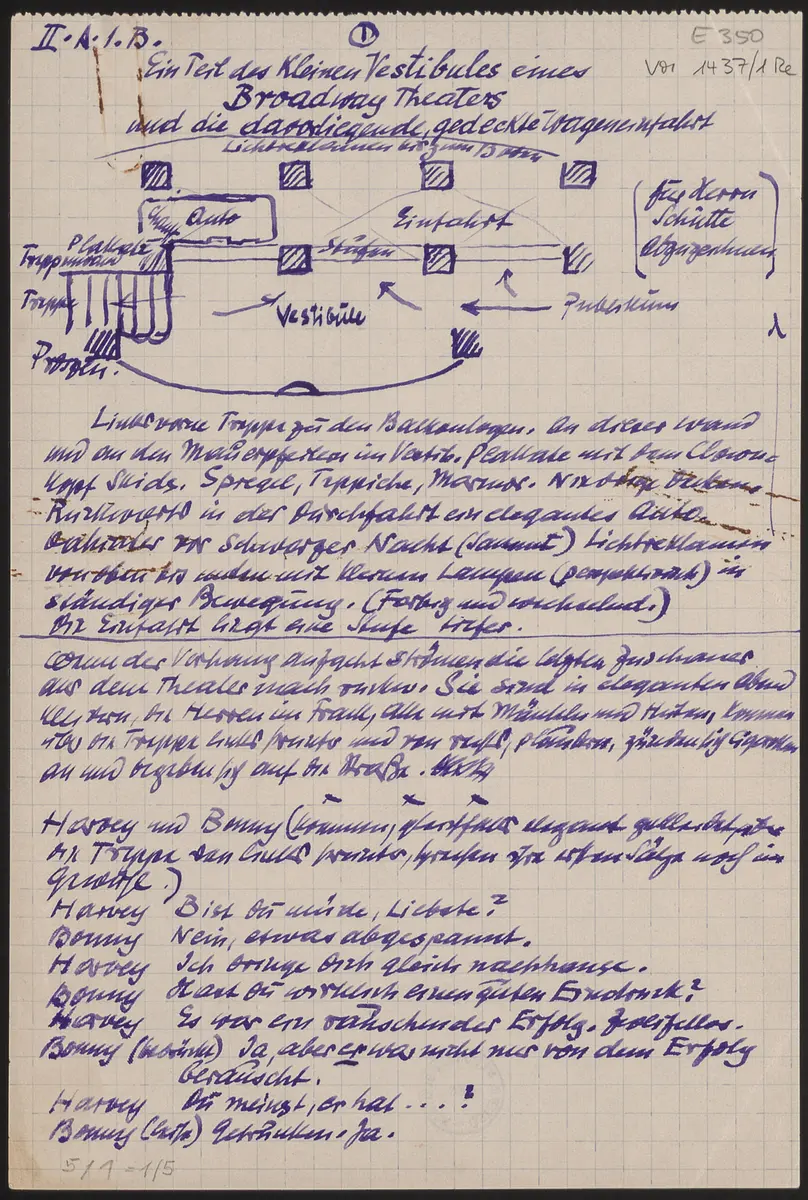 II. A. 1. B.
①
E 350
1437/1 Re
Ein Teil des Kleinen Vestibules eines
Broadway Theaters
und die davorliegende, gedeckte Wageneinfahrt
Lichtreklamen bis zum Boden
Auto
Einfahrt
für Herrn
Schütte
abzuzeichnen
Plakate
Stufen
Treppe
Vestibule
Publikum
Links vorne Treppe zu den Balkonlogen. An dieser Wand
und an den Mauerpfeilern im Vestib. Plakate mit dem Clown-
kopf Skids. Spiegel, Teppiche, Marmor. Niedrige Decken
Rückwärts in der Durchfahrt ein elegantes Auto.
Dahinter vor schwarzer Nacht (Samt) Lichtreklamen
von oben bis unten mit kleinen Lampen (perspektivisch) in
ständiger Bewegung. (Farbig und wechselnd.)
Die Einfahrt liegt eine Stufe tiefer.
Wenn der Vorhang aufgeht strömen die letzten Zuschauer
aus dem Theater nach aussen. Sie sind in eleganten Abend
kleidern, die Herren im Frack, alle mit Mänteln und Hüten, kommen
über die Treppe links herunter und von rechts, plaudern, zünden sich Cigaretten
an und begeben sich auf die Straße.
Harvey und Bonny (kommen, gleichfalls elegant gekleidet, über
die Treppe von links herunter, sprechen ihre ersten Sätze noch im
Gewühl.)
Harvey Bist du müde, Liebste?
Bonny Nein, etwas abgespannt.
Harvey Ich bringe dich gleich nachhause.
Bonny Hast du wirklich einen guten Eindruck?
Harvey Es war ein rauschender Erfolg. Zweifellos.
Bonny (bedrückt) Ja, aber er war nicht nur von dem Erfolg
berauscht.
Harvey Du meinst, er hat . . . ?
Bonny (leise) Getrunken. Ja.
5/1 = 1/5